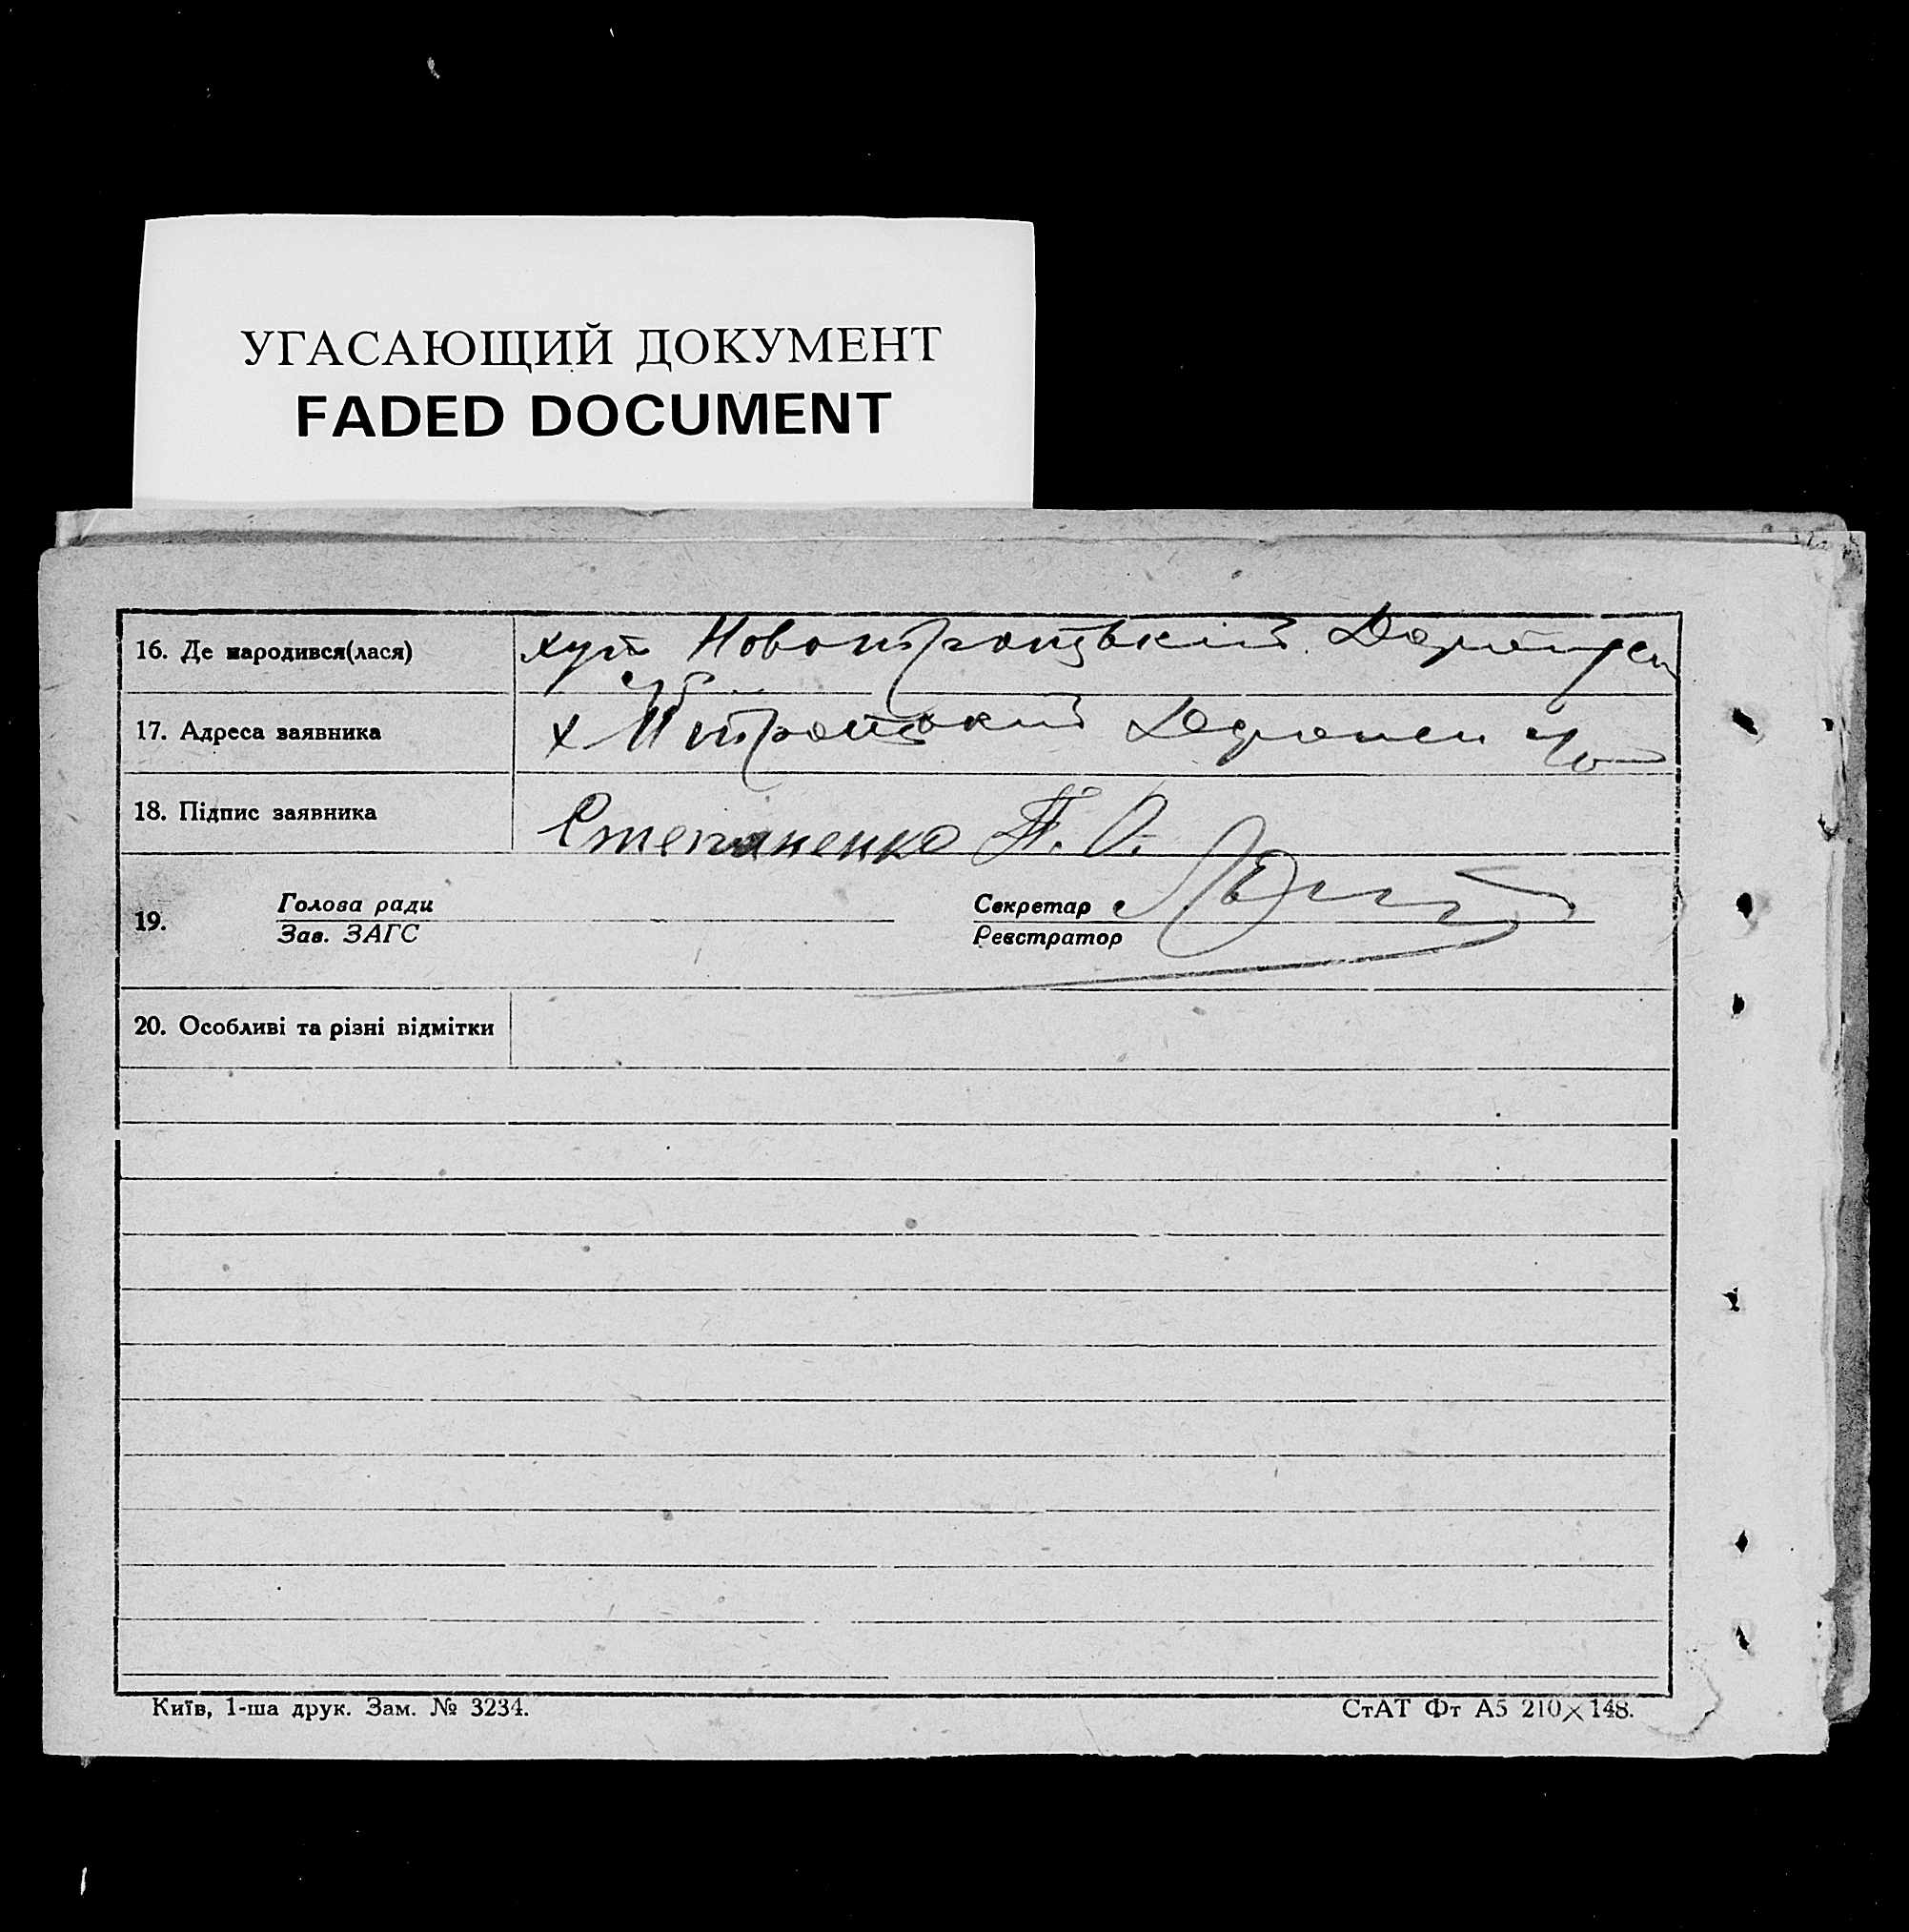 УГАСАЮЩИЙ ДОКУМЕНТ
FADED DOCUMENT
16. Де народився(лася) хут Новотроїцький
17. Адреса заявника х
18. Підпис заявника Степаненко П. О.
19. Голова ради Секретар
Зав. ЗАГС Реєстратор
20. Особливі та різні відмітки
Київ, 1-ша друк. Зам. № 3234. СтАТ Фт А5 210×148.